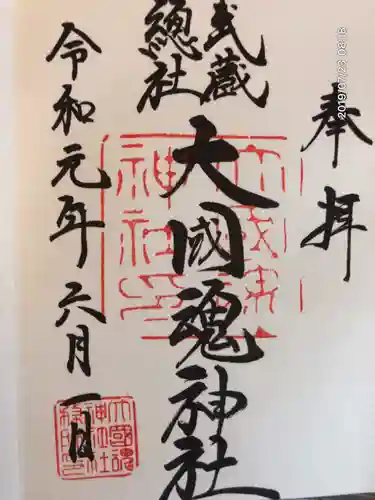 奉拝
武蔵
總社
大國魂神社
令和元年六月一日
2019/07/22 08:16